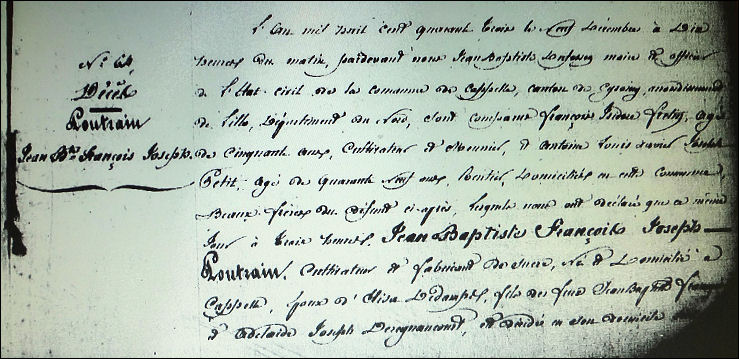 N° 64
Décès
Poutrain
Jean Bte François Joseph.
L'An mil huit cent quarante trois le neuf Décembre à dix
heures du matin, pardevant nous Jean Baptiste maire et officier
de l'État civil de la commune de Cappelle, canton de Cysoing, arrondissement
de Lille, Département du Nord, sont comparus François Isidore agé
de cinquante ans, Cultivateur et Meunier, et Antoine Louis Xavier Joseph
Petit, agé de quarante neuf ans, Rentier, domiciliés en cette commune,
Beaux frères du défunt ci-après, lesquels nous ont déclaré que ce même
jour à trois heures, Jean Baptiste François Joseph
Poutrain, Cultivateur et fabricant de sucre, Né et domicilié à
Cappelle, époux d'Elisa Descamps, fils des feux Jean Baptiste François
et Adélaïde Joseph est décédé en son domicile